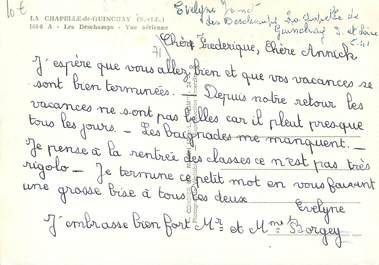 10€
LA CHAPELLE-de-GUINCHAY (S.-et-L.)
164 A - Les Deschamps - Vue aérienne
Evelyne
des Deschamps La Chapelle de
Guinchay S. et Loire
71
Chère Frederique, Chère Annick
J'espère que vous allez bien et que vos vacances se
sont bien terminées. — Depuis notre retour les
vacances ne sont pas belles car il pleut presque
tous les jours. — Les baignades me manquent. —
Je pense à la rentrée des classes ce n'est pas très
rigolo — Je termine ce petit mot en vous faisant
une grosse bise à tous les deux
Evelyne
J'embrasse bien fort Mr et Mme Borgey